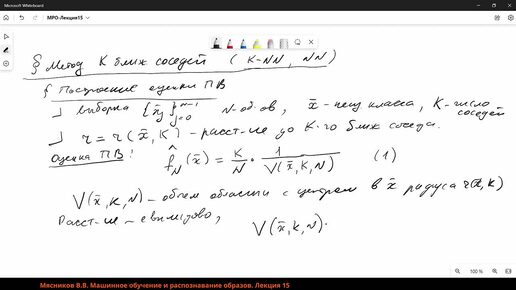 Microsoft Whiteboard
МРО-Лекция15
§ Метод K ближ соседей (K-NN, NN)
§ Построение оценки ПВ
⌟ выборка {x̄_j}_{j=0}^{N-1} N-об-ов, x̄ - класса, K-число соседей
⌟ r = r(x̄, K) - расст-ие до K-го ближ соседа.
Оценка ПВ: f̂_N(x̄) = K/N · 1/V(x̄, K, N) (1)
V(x̄, K, N) - объем области с центром в x̄ радиуса r(x̄, K)
Расст-ие - евклидово, V(x̄, K, N)
100 %
Мясников В.В. Машинное обучение и распознавание образов. Лекция 15